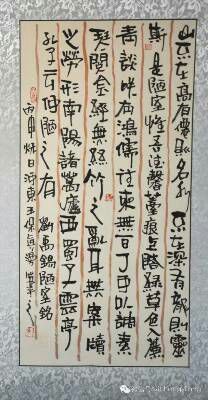 山不在高有僊則名水不在深有龍則靈
斯是陋室惟吾德馨苔痕上階綠草色入簾
青談笑有鴻儒往來無白丁可以調素
琴閱金經無絲竹之亂耳無案牘
之勞形南陽諸葛廬西蜀子雲亭
孔子云何陋之有 劉禹錫陋室銘
丙申秋日河東王保